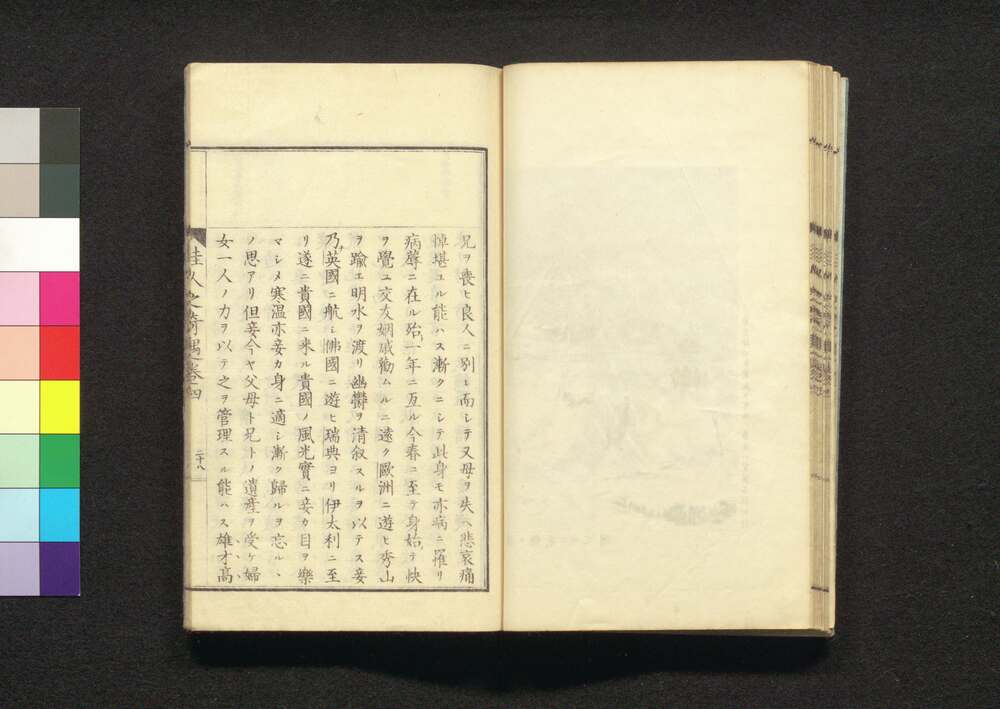 兄ヲ喪ヒ良人ニ別レ而シテ又母ヲ失ヘ悲哀痛
悼堪ユル能ハス漸クニシテ此身モ亦病ニ罹リ
病蓐ニ在ル殆ト一年ニ亙ル今春ニ至テ身始テ快
ヲ覺ユ交友姻戚勸ムルニ遠ク歐洲ニ遊ヒ秀山
ヲ踰エ明水ヲ渡リ幽鬱ヲ清叙スルヲ以テス妾
乃チ英國ニ航シ佛國ニ遊ヒ瑞典ヨリ伊太利ニ至
リ遂ニ貴國ニ來ル貴國ノ風光實ニ妾カ目ヲ樂
マシメ寒温亦妾カ身ニ適シ漸ク歸ルヲ忘ルヽ
ノ思アリ但妾今ヤ父母ト兄トノ遺産ヲ受ケ婦
女一人ノ力ヲ以テ之ヲ管理スル能ハス雄才高
佳人之奇遇卷四
二十八